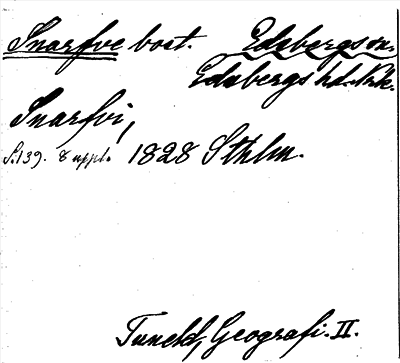 Snarfve bost. Edsbergs sn.
Edsbergs hd. Nke.
Snarfvi,
S. 139. 8 uppl. 1828 Sthlm.
Tuneld, Geografi. II.